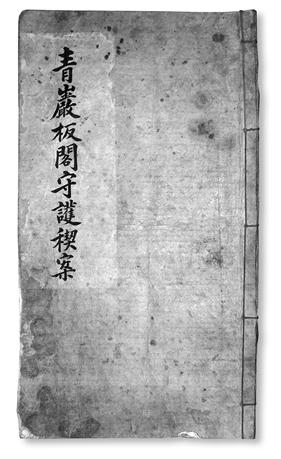 青巖板閣守護稧案